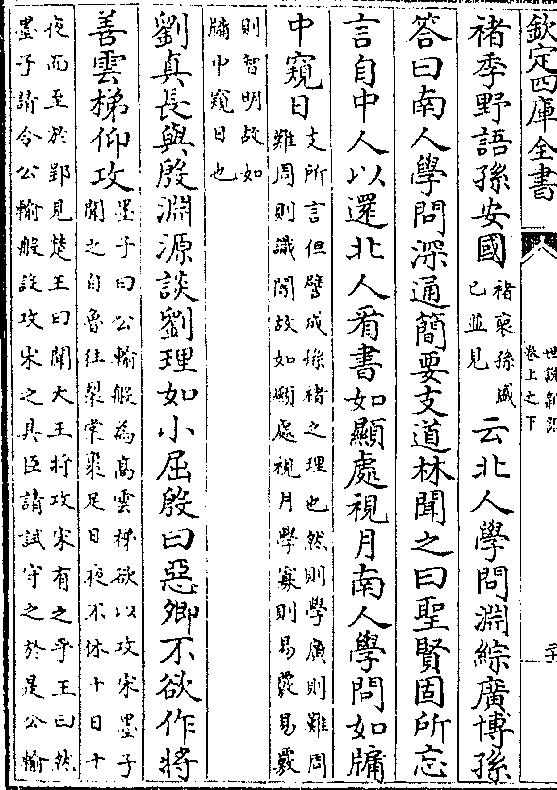 欽定四庫全書
世說新語
卷上之下
二十
褚季野語孫安國
褚裒孫盛
已並見
云北人學問淵綜廣博孫
答曰南人學問深通簡要支道林聞之曰聖賢固所忘
言自中人以還北人看書如顯處視月南人學問如牖
中窺日
支所言但譬成孫褚之理也然則學廣則難周
難周則識闇故如顯處視月學寡則易覈易覈
則智明故如
牖中窺日也
劉真長與殷淵源談劉理如小屈殷曰惡卿不欲作將
善雲梯仰攻
墨子曰公輸般為高雲梯欲以攻宋墨子
聞之自魯往裂裳裹足日夜不休十日十
夜而至於郢見楚王曰聞大王將攻宋有之乎王曰然
墨子請令公輸般設攻宋之具臣請試守之於是公輸